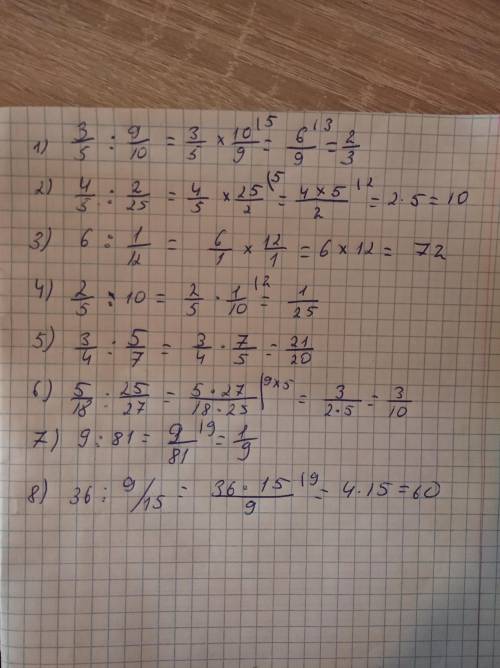 1) 3/5 : 9/10 = 3/5 × 10/9 |5 = 6/9 |3 = 2/3
2) 4/5 : 2/25 = 4/5 × 25/2 |5 = 4×5/2 |2 = 2·5 = 10
3) 6 : 1/12 = 6/1 × 12/1 = 6 × 12 = 72
4) 2/5 : 10 = 2/5 · 1/10 |2 = 1/25
5) 3/4 : 5/7 = 3/4 · 7/5 = 21/20
6) 5/18 : 25/27 = 5·27/18·25 |9×5 = 3/2·5 = 3/10
7) 9 : 81 = 9/81 |9 = 1/9
8) 36 : 9/15 = 36·15/9 |9 = 4·15 = 60